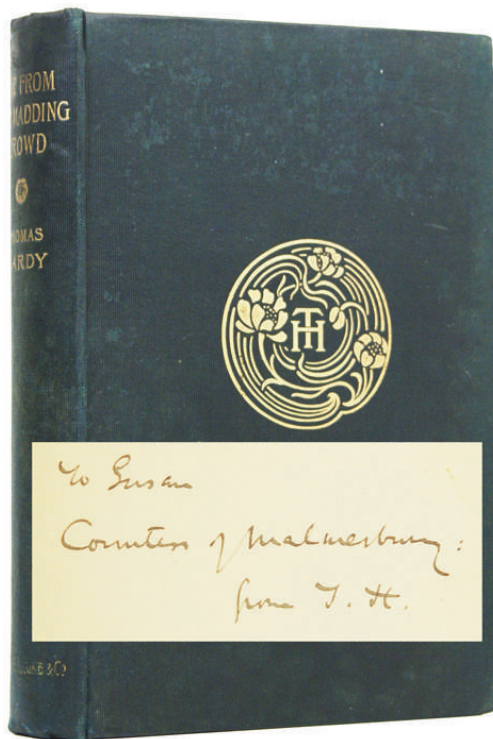 FROM
MADDING
ROWD
HOMAS
ARDY
TH
To Susan
Countess of Malmesbury:
from T. H.
& Co